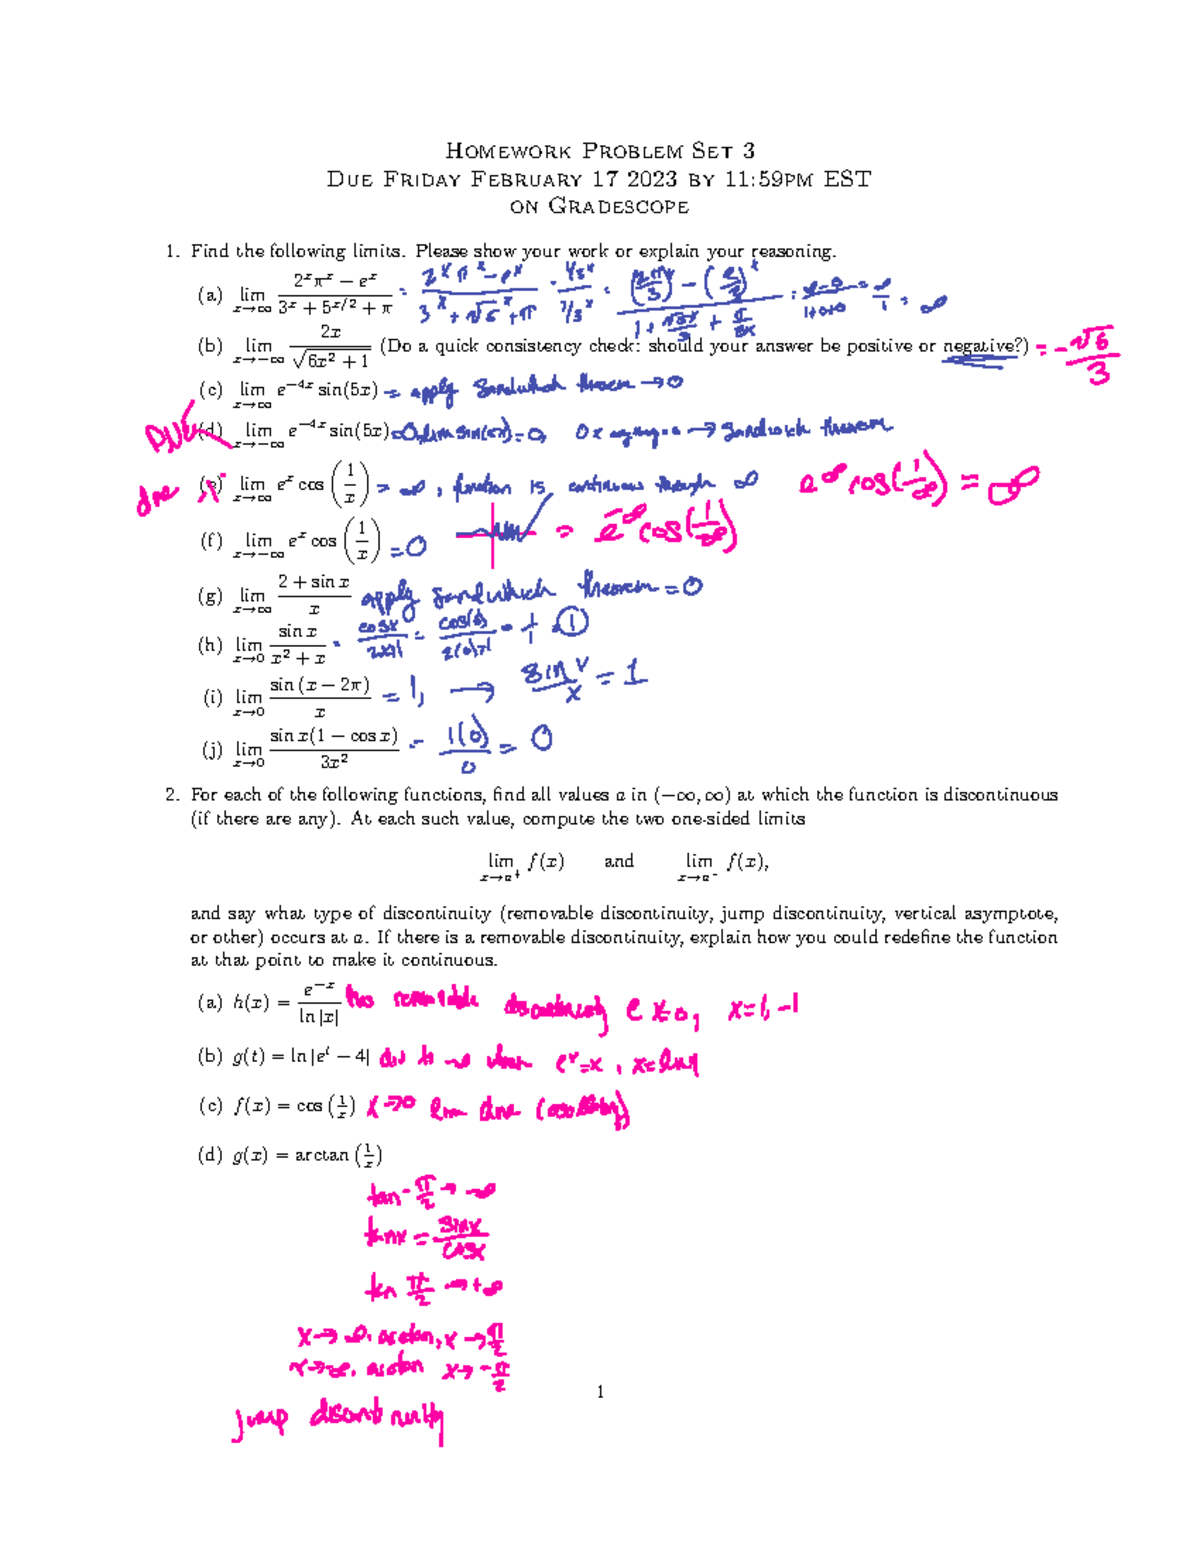 Homework Problem Set 3
Due Friday February 17 2023 by 11:59pm EST
on Gradescope
1. Find the following limits. Please show your work or explain your reasoning.
(a) lim x→∞ (2^x π^x − e^x)/(3^x + 5^{x/2} + π) = (2^x π^x − e^x)/(3^x + √5^x + π) · (1/3^x)/(1/3^x) = ((2π/3)^x − (e/3)^x)/(1 + (√5/3)^x + π/3^x) = (∞ − 0)/(1+0+0) = ∞/1 = ∞
(b) lim x→−∞ 2x/√(6x² + 1) (Do a quick consistency check: should your answer be positive or negative?) = −√6/3
(c) lim x→∞ e^{−4x} sin(5x) = apply Sandwhich theorem → 0
DNE (d) lim x→−∞ e^{−4x} sin(5x) = 0, lim sin(5x) = 0, 0 x → Sandwich theorem
dne (e) lim x→∞ e^x cos(1/x) = ∞, function is continuous through ∞ e^∞ cos(1/∞) = ∞
(f) lim x→−∞ e^x cos(1/x) = 0 = e^{−∞} cos(1/∞)
(g) lim x→∞ (2 + sin x)/x apply Sandwhich theorem = 0
(h) lim x→0 sin x/(x² + x) = cosx/(2x+1) = cos(0)/(2(0)+1) = 1/1 = 1
(i) lim x→0 sin (x − 2π)/x = 1, → sin x/x = 1
(j) lim x→0 sin x(1 − cos x)/3x² = 1(0)/0 = 0
2. For each of the following functions, find all values a in (−∞, ∞) at which the function is discontinuous
(if there are any). At each such value, compute the two one-sided limits
lim x→a⁺ f(x) and lim x→a⁻ f(x),
and say what type of discontinuity (removable discontinuity, jump discontinuity, vertical asymptote,
or other) occurs at a. If there is a removable discontinuity, explain how you could redefine the function
at that point to make it continuous.
(a) h(x) = e^{−x}/ln |x| has removable discontinuity @ x=0, x=1, −1
(b) g(t) = ln |e^t − 4| to −∞ when e^x = x, x=ln4
(c) f(x) = cos(1/x) x→0 lim dne
(d) g(x) = arctan(1/x)
tan −π/2 → −∞
tanx = sinx/cosx
tan π/2 → +∞
x → ∞, arctan, x → π/2
x → ∞, arctan x → −π/2
jump discontinuity
1